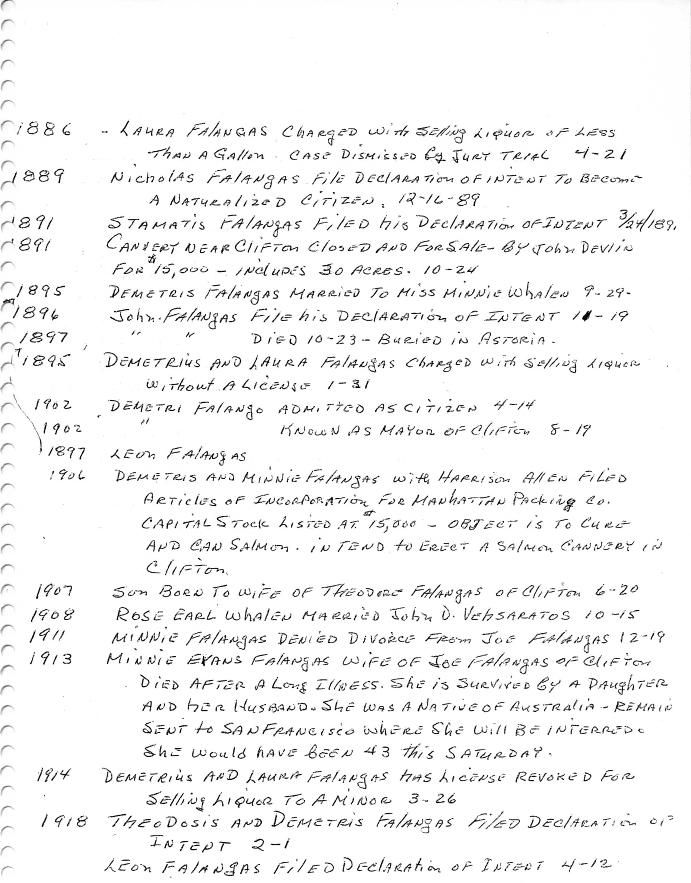 1886 - LAURA FALANGAS CHARGED with Selling LIQUOR OF LESS
THAN A GALLON. CASE DISMISSED By JURY TRIAL 4-21
1889 NICHOLAS FALANGAS FILE DECLARATION OF INTENT TO BECOME
A NATURALIZED CITIZEN. 12-16-89
1891 STAMATIS FALANGAS FILED his DECLARATION OF INTENT 3/24/1891
1891 CANNERY NEAR CLIFTON CLOSED AND FOR SALE - BY John DEVLIN
FOR $15,000 - INCLUDES 30 ACRES. 10-24
1895 DEMETRIS FALANGAS MARRIED TO MISS MINNIE WHALEN 9-29-
1896 John. FALANGAS FILE his DECLARATION OF INTENT 11-19
1897 " " DIED 10-23 - BURIED IN ASTORIA.
1895 DEMETRIUS AND LAURA FALANGAS CHARGED with SELLING LIQUOR
WITHOUT A LICENSE 1-31
1902 DEMETRI FALANGO ADMITTED AS CITIZEN 4-14
1902 " KNOWN AS MAYOR OF CLIFTON 8-19
1897 LEON FALANGAS
1906 DEMETRIS AND MINNIE FALANGAS with HARRISON ALLEN FILED
ARTICLES OF INCORPORATION FOR MANHATTAN PACKING CO.
CAPITAL STOCK LISTED AT $15,000 - OBJECT IS TO CURE
AND CAN SALMON. INTEND to ERECT A SALMON CANNERY IN
CLIFTON.
1907 SON BORN TO WIFE OF THEODORE FALANGAS OF CLIFTON 6-20
1908 ROSE EARL WHALEN MARRIED John D. VEHSARATOS 10-15
1911 MINNIE FALANGAS DENIED DIVORCE FROM JOE FALANGAS 12-19
1913 MINNIE EVANS FALANGAS WIFE OF JOE FALANGAS OF CLIFTON
DIED AFTER A LONG ILLNESS. SHE IS SURVIVED BY A DAUGHTER
AND HER HUSBAND. SHE WAS A NATIVE OF AUSTRALIA - REMAIN
SENT to SAN FRANCISCO WHERE SHE WILL BE INTERRED.
SHE WOULD HAVE BEEN 43 this SATURDAY.
1914 DEMETRIUS AND LAURA FALANGAS HAS LICENSE REVOKED FOR
SELLING LIQUOR TO A MINOR 3-26
1918 THEODOSIS AND DEMETRIS FALANGAS FILED DECLARATION OF
INTENT 2-1
LEON FALANGAS FILED DECLARATION OF INTENT 4-12